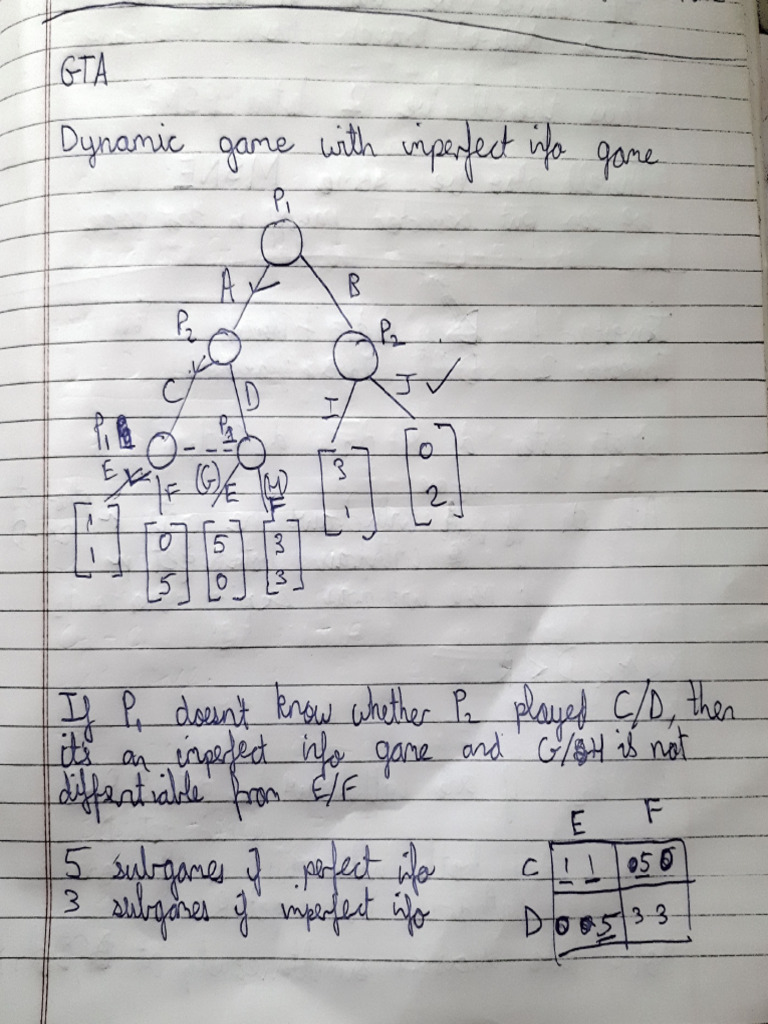 GTA
Dynamic game with inperfect info game
P₁
A B
P₂ P₂
C D I J ✓
P₁ P₁
E F (G) E (H) F
[1 1] [0 5] [5 0] [3 3] [3 1] [0 2]
If P₁ doesn't know whether P₂ played C/D, then
its an inperfect info game and G/H is not
differtiable from E/F
E F
5 subgames if perfect info C 1 1 5 0
3 subgames if imperfect info D 0 5 3 3